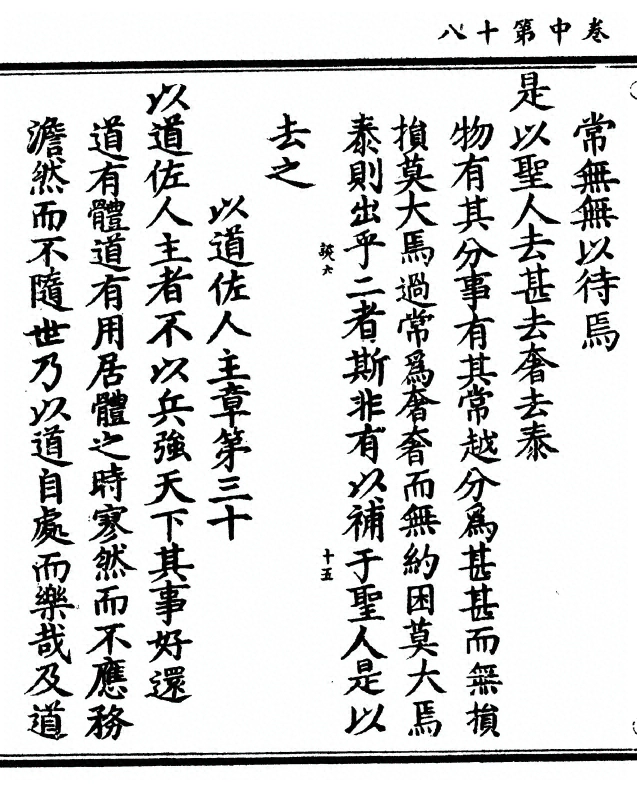 卷中第十八
常無無以待焉
是以聖人去甚去奢去泰
物有其分事有其常越分爲甚甚而無損
損莫大焉過常爲奢奢而無約困莫大焉
泰則出乎二者斯非有以補于聖人是以
去之
談六
十五
以道佐人主章第三十
以道佐人主者不以兵強天下其事好還
道有體道有用居體之時寥然而不應務
澹然而不隨世乃以道自處而樂哉及道